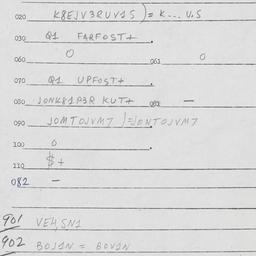 020 K8EJV3RUV1S ) = K... U.S
030 Q1 FARFOST+
060 0 061 0
070 Q1 UPFOST+
080 JONK81P3R KUT+ —
090 JOMTOJVM7 )=JONTOJVM7
100 0
110 $+
082 –
901 VEH,SN1
902 BOJ1N = BOV1N